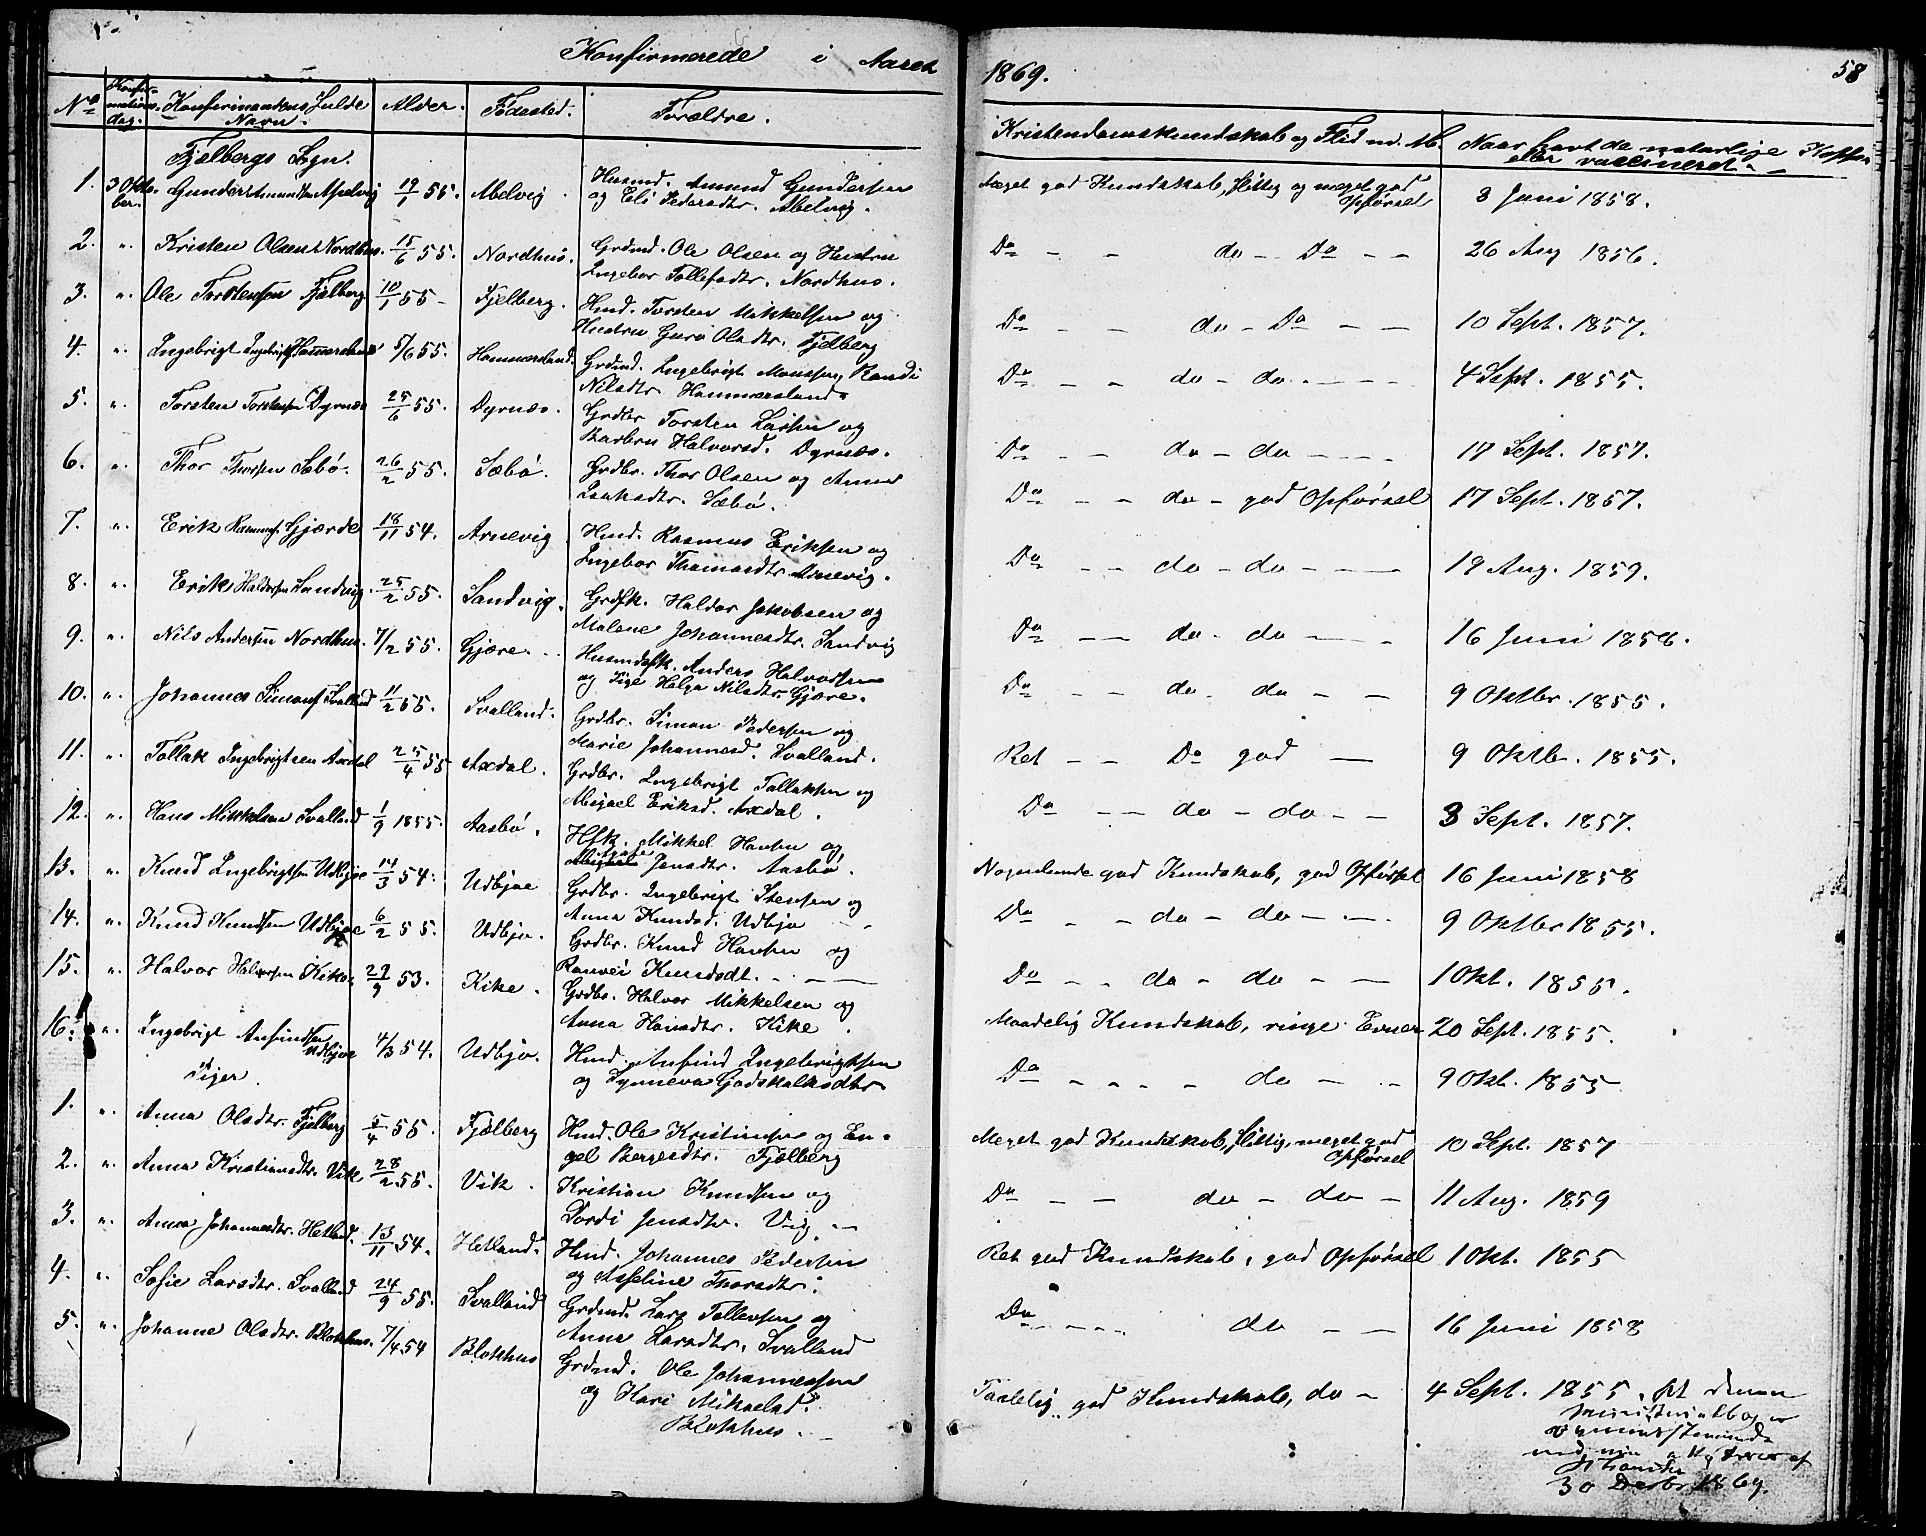 Konfirmerede i Aaret 1869. 58
No Konfirmations dag. Konfirmandens Fulde Navn. Alder. Fødested. Forældre. Kristendomskundskab og Flid m. M. Naar havt de naturlige Kopper eller vaccineret.
Fjælbergs Sgn.
1. 3 Oktober. Gunder Amundsen 19/1 55. Abelvig. Husmd. Amund Gundersen Meget god Kundskab, flittig og meget god Opførsel 8 Juni 1858.
og Eli Pedersdtr. Abelvig.
2. " Kristen Olsen Nordhus. 15/6 55. Nordhus. Grdmd. Ole Olsen og Hustru Do - - do - Do - - 26 Aug 1856.
Ingebor Tollefsdtr. Nordhus.
3. " Ole Torstensen Fjelberg 10/1 55 - Fjelberg. Hmd. Torsten Mikkelsen og Do - - do - Do - - 10 Sept. 1857.
Hustru Guro Olsdtr. Fjelberg
4. " Ingebrigt Ingebrigts. Hammersland 5/6 55. Hammersland. Grdmd. Ingebrigt Monssen, Randi Do - - do - do - - - 4 Sept. 1855.
Nilsdtr Hammersland.
5. " Torsten Torstensen Dyrnes 25/6 55. Dyrnes. Grdbr Torsten Larsen og Do - - do - do - - - 17 Sept. 1857.
Barbru Halvorsd. Dyrnes.
6. " Thor Thorsen Sæbø. 26/2 55. Sæbø. Grdbr. Thor Olsen og Anna Do - - do - god Opførsel 17 Sept. 1857.
Isaksdtr. Sæbø.
7. " Erik Rasmuss. Gjærde 18/11 54. Arnevig Hmd. Rasmus Eriksen og Do - - do - do - - - 19 Aug. 1859.
Ingebor Thomasdtr Arnevig.
8. " Erik Haldorsen Sandvig. 25/2 55. Sandvig. Grdfk. Haldor Jakobsen og Do - - do - do - - 16 Juni 1858.
Malene Johannesdtr. Sandvig
9. " Nils Andersen Nordhus. 7/2 55. Gjære. Husmdsfk. Anders Halvorsen Do - - do - do - - 9 Oktbr. 1855.
og Pige Helga Nilsdtr. Gjære.
10. " Johannes Simons. Svalland 11/2 55. Svalland. Grdbr. Simon Pedersen og Ret - - Do god - 9 Oktbr. 1855.
Marie Johannesd. Svalland.
11. " Tollak Ingebrigtsen Axdal 25/4 55 Axdal. Grdbr. Ingebrigt Tollaksen og Do - - do - do - - 3 Sept. 1857.
Eriksd. Axdal.
12. " Hans Mikkelsen Svalland 1/9 1855. Aasbø. Hfk. Mikkel Hansen og Nogenlunde god Kundskab, god Opførsel 16 Juni 1858
Jensdtr. Aasbø.
13. " Knud Ingebrigtsen Udbjoe 14/3 54. Udbjoe Grdbr. Ingebrigt Stensen og Do - - do - do - - 9 Oktbr 1855.
Anna Knudsd. Udbjo
14. " Knud Knudsen Udbjoe 6/2 55. Udbjo. Grdbr. Knud Hansen og Do - - do - do - - 1 Okt. 1855.
Ranvei Knudsdt. - - -
15. " Halvor Halvorsen Kike. 29/9 53. Kike. Grdbr. Halvor Mikkelsen og Maadelig Kundskab, ringe Evner 20 Sept. 1855.
Anna Hansdtr. Kike.
16. " Ingebrigt Anfindsen Udbjoe 4/3 54. Udbjo. Hmd. Anfind Ingebrigtsen Do - - - - do - - 9 Okt. 1855
og Synneva Godskalksdtr
Piger.
1. " Anna Olsdtr. Fjelberg 5/4 55. Fjælberg Hmd. Ole Kristensen og En- Meget god Kundskab, flittig, meget god Opførsel 10 Sept. 1857
gel Børgesdtr. Fjælberg
2. " Anna Kristiansdtr. Vik 28/2 55. Vik. Kristian Knudsen og Do - - do - do - 11 Aug. 1859
Sordi Jensdtr. Vig -
3. " Anna Johannesdtr. Hetland. 13/11 54. Hetland. Hmd. Johannes Pedersen Ret god Kundskab, god Opførsel 1 Okt. 1855
og Asseline Thorsdtr.
4. " Sofie Larsdtr. Svalland 24/9 55. Svalland Grdmd. Lars Tollevsen og Do - - - do - - 16 Juni 1858
Anna Larsdtr. Svalland
5. " Johanne Olsdtr. Blokhus. 7/4 54 Blokhus Grdmd. Ole Johannessen Taalelig god Kundskab, do - 4 Sept. 1855.
og Kari Mikaelsd.
Blokhus.
30 Decbr 1869.